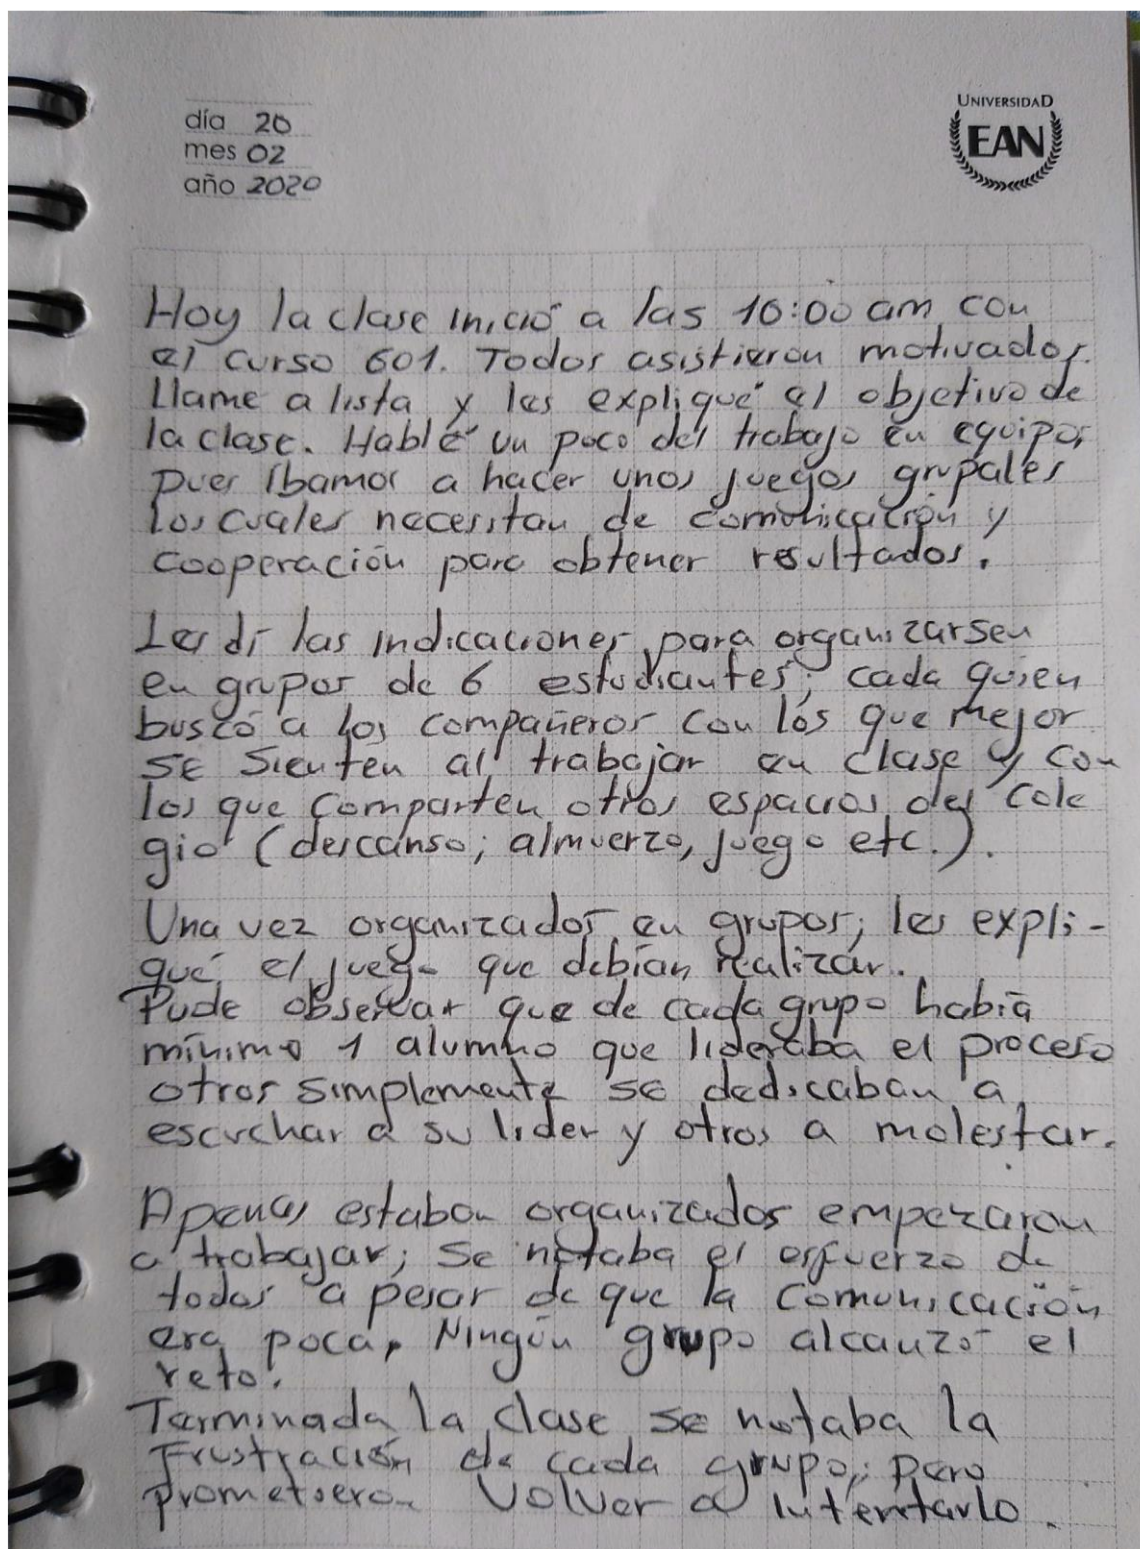 día 20
mes 02
año 2020
UNIVERSIDAD
EAN
Hoy la clase inició a las 10:00 am con
el curso 601. Todos asistieron motivados.
Llame a lista y les expliqué el objetivo de
la clase. Hablé un poco del trabajo en equipo,
pues ibamos a hacer unos juegos grupales
los cuales necesitan de comunicación y
cooperación para obtener resultados.
Les dí las indicaciones para organizarsen
en grupos de 6 estudiantes; cada quien
buscó a los compañeros con los que mejor
se sienten al trabajar en clase y con
los que comparten otros espacios del cole
gio (descanso; almuerzo, juego etc.).
Una vez organizados en grupos; les expli-
qué el juego que debían realizar.
Pude observar que de cada grupo había
mínimo 1 alumno que lideraba el proceso
otros simplemente se dedicaban a
escuchar a su lider y otros a molestar.
Apenas estaban organizados empezaron
a trabajar; se notaba el esfuerzo de
todos a pesar de que la comunicación
era poca, Ningún grupo alcanzó el
reto.
Terminada la clase se notaba la
frustración de cada grupo; pero
prometieron volver a intentarlo.